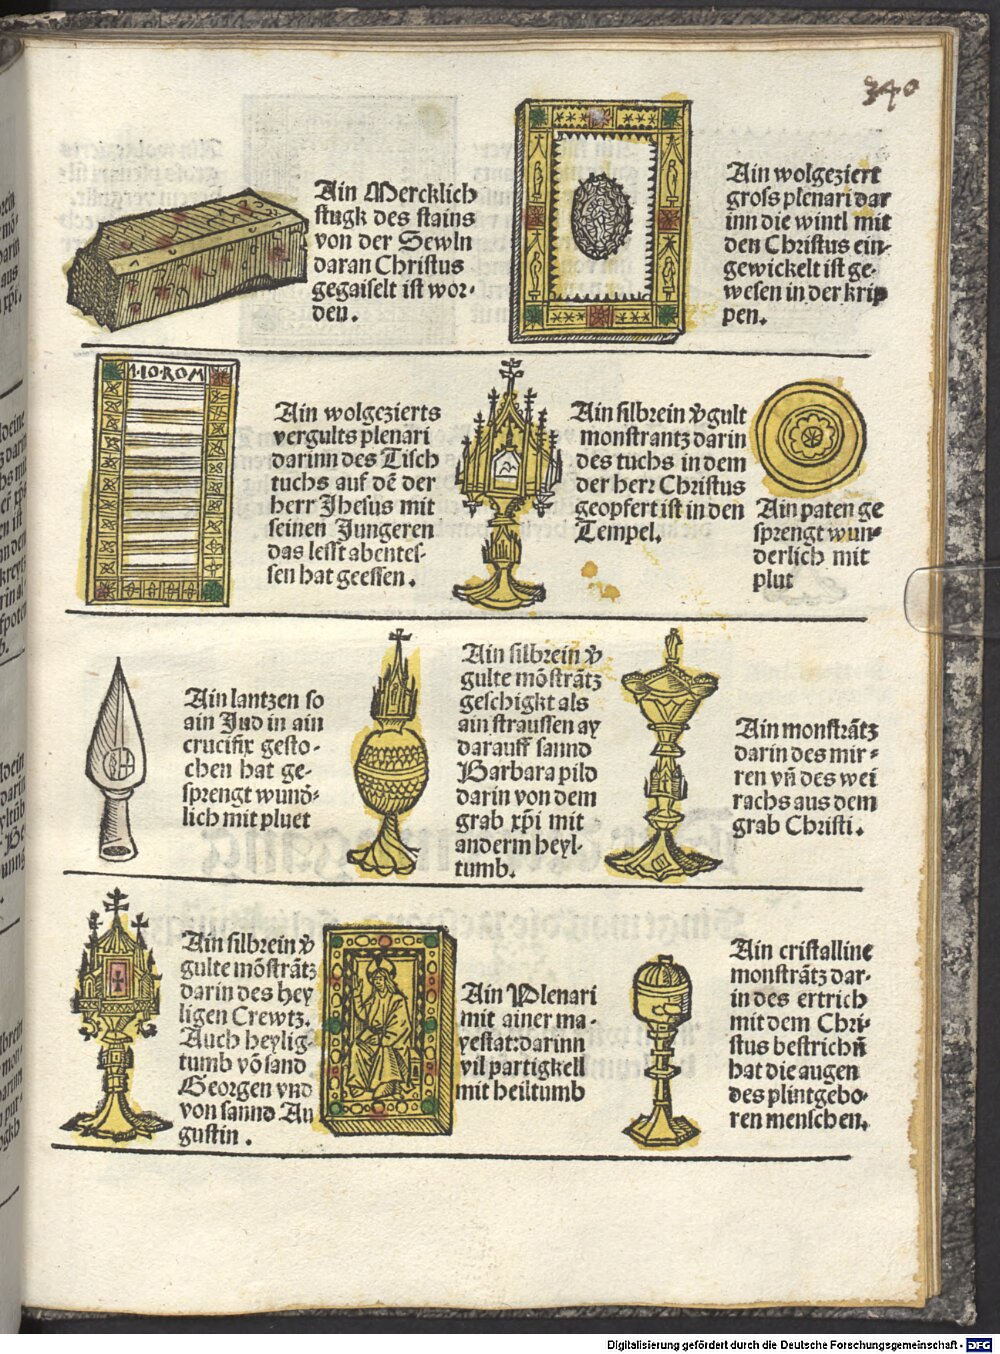 340
Ain Mercklich
stugk des stains
von der Sewln
daran Christus
gegaiselt ist wor-
den.
Ain wolgeziert
gross plenari dar
inn die wintl mit
den Christus ein-
gewickelt ist ge-
wesen in der krip
pen.
M·IO·ROM
Ain wolgezierts
vergults plenari
darinn des Tisch
tuchs auf dē der
herr Jhesus mit
seinen Jungeren
das lesst abentes-
sen hat geessen.
Ain silbrein v̄gult
monstrantz darin
des tuchs in dem
der herr Christus
geopfert ist in den
Tempel.
Ain paten ge
sprengt wun-
derlich mit
plut
Ain lantzen so
ain Jud in ain
crucifix gesto-
chen hat ge-
sprengt wund̄-
lich mit pluet
Ain silbrein v̄
gulte mōstrātz
geschigkt als
ain straussen ay
darauff sannd
Barbara pild
darin von dem
grab xp̄i mit
anderm heyl-
tumb.
Ain monstrātz
darin des mir-
ren vn̄ des wei
rachs aus dem
grab Christi.
Ain silbrein v̄
gulte mōstrātz
darin des hey
ligen Crewtz.
Auch heylig
tumb vō sand
Georgen vnd
von sannd Au
gustin.
Ain Plenari
mit ainer ma-
yestat: darinn
vil partigkell
mit heiltumb
Ain cristalline
monstrātz dar-
in des ertrich
mit dem Chri-
stus bestrichn̄
hat die augen
des plintgebo-
ren menschen.
Digitalisierung gefördert durch die Deutsche Forschungsgemeinschaft - DFG